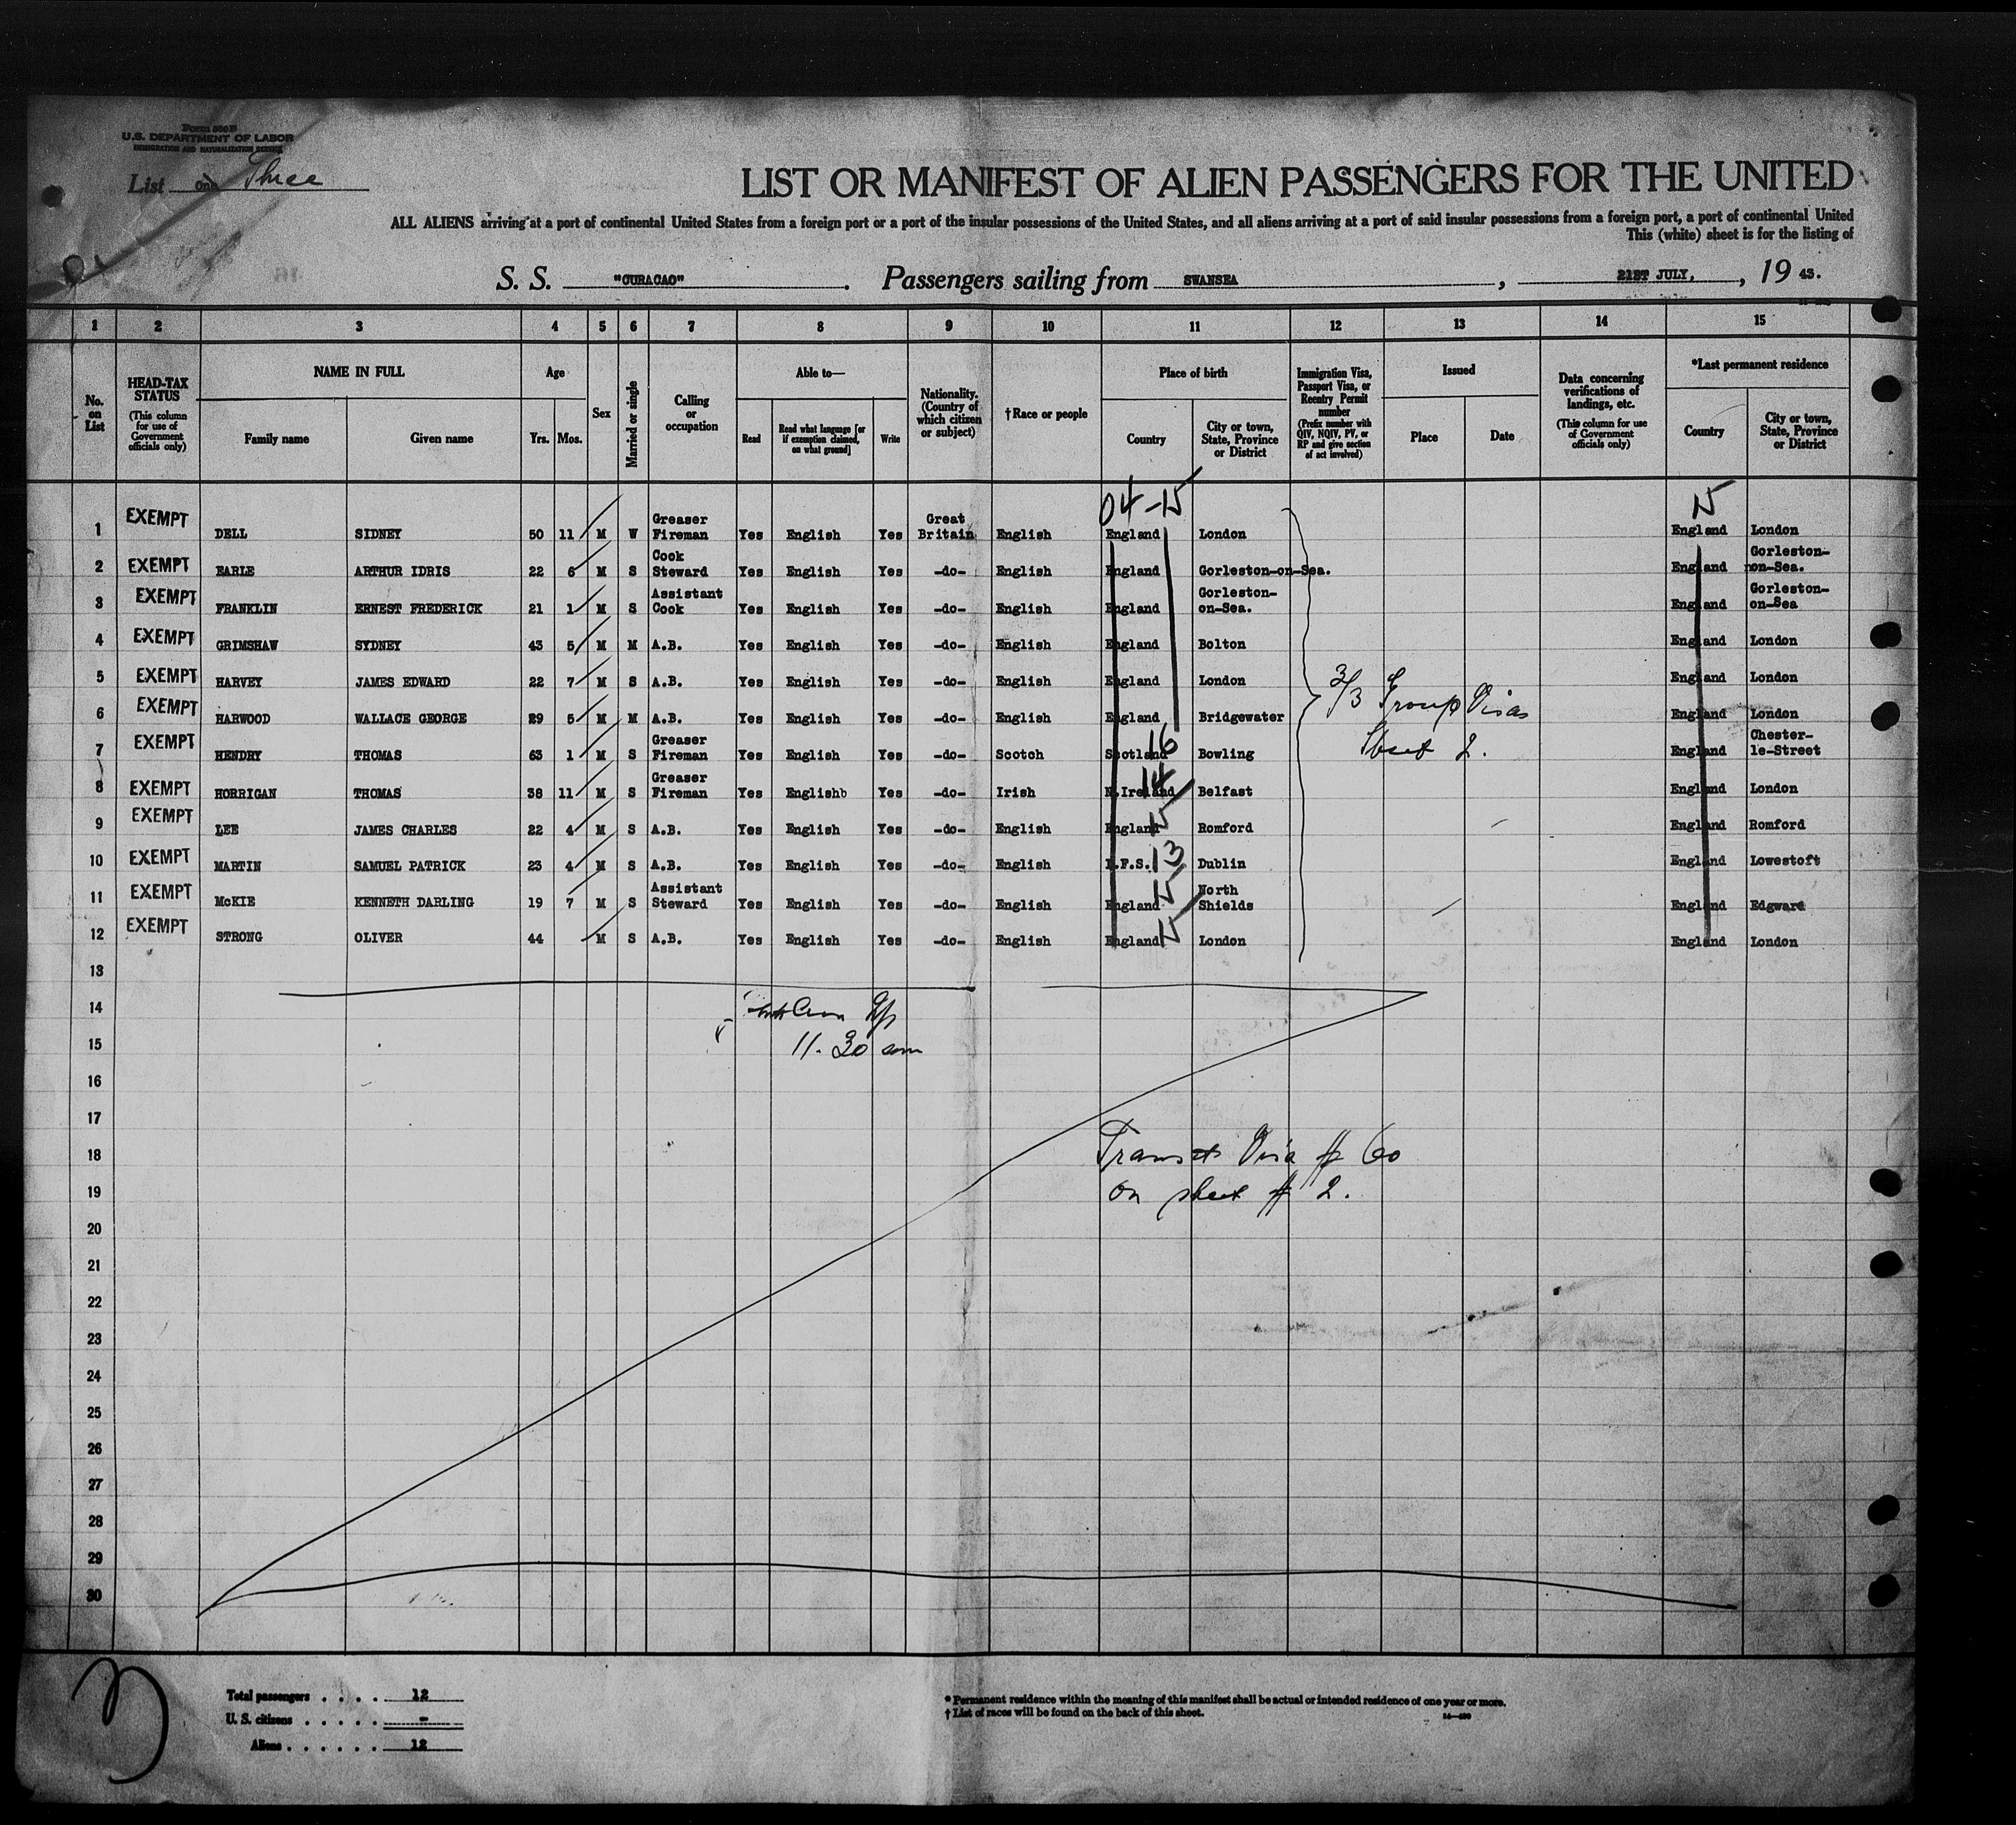 Form 500 B
U.S. DEPARTMENT OF LABOR
IMMIGRATION AND NATURALIZATION SERVICE
List one Three
LIST OR MANIFEST OF ALIEN PASSENGERS FOR THE UNITED
ALL ALIENS arriving at a port of continental United States from a foreign port or a port of the insular possessions of the United States, and all aliens arriving at a port of said insular possessions from a foreign port, a port of continental United
This (white) sheet is for the listing of
S. S. "CURACAO". Passengers sailing from SWANSEA, 21ST JULY, , 19 43.
1 2 3 4 5 6 7 8 9 10 11 12 13 14 15
No. on List
HEAD-TAX STATUS
(This column for use of Government officials only)
NAME IN FULL
Family name Given name
Age
Yrs. Mos.
Sex
Married or single
Calling or occupation
Able to—
Read
Read what language [or if exemption claimed, on what ground]
Write
Nationality. (Country of which citizen or subject)
†Race or people
Place of birth
Country
City or town, State, Province or District
Immigration Visa, Passport Visa, or Reentry Permit number
(Prefix number with QIV, NQIV, PV, or RP and give section of act involved)
Issued
Place Date
Data concerning verifications of landings, etc.
(This column for use of Government officials only)
*Last permanent residence
Country
City or town, State, Province or District
04-15
15
1 EXEMPT DELL SIDNEY 50 11 M W Greaser Fireman Yes English Yes Great Britain English England London England London
2 EXEMPT EARLE ARTHUR IDRIS 22 6 M S Cook Steward Yes English Yes -do- English England Gorleston-on-Sea. England Gorleston-on-Sea.
3 EXEMPT FRANKLIN ERNEST FREDERICK 21 1 M S Assistant Cook Yes English Yes -do- English England Gorleston-on-Sea. England Gorleston-on-Sea
4 EXEMPT GRIMSHAW SYDNEY 43 5 M M A.B. Yes English Yes -do- English England Bolton England London
5 EXEMPT HARVEY JAMES EDWARD 22 7 M S A.B. Yes English Yes -do- English England London England London
6 EXEMPT HARWOOD WALLACE GEORGE 29 5 M M A.B. Yes English Yes -do- English England Bridgewater England London
3/3 Group Visas
Sheet 2.
7 EXEMPT HENDRY THOMAS 63 1 M S Greaser Fireman Yes English Yes -do- Scotch Scotland 16 Bowling England Chester-le-Street
8 EXEMPT HORRIGAN THOMAS 38 11 M S Greaser Fireman Yes Englishb Yes -do- Irish N.Ireland 14 Belfast England London
9 EXEMPT LEE JAMES CHARLES 22 4 M S A.B. Yes English Yes -do- English England 15 Romford England Romford
10 EXEMPT MARTIN SAMUEL PATRICK 23 4 M S A.B. Yes English Yes -do- English I.F.S. 13 Dublin England Lowestoft
11 EXEMPT McKIE KENNETH DARLING 19 7 M S Assistant Steward Yes English Yes -do- English England 15 North Shields England Edgware
12 EXEMPT STRONG OLIVER 44 M S A.B. Yes English Yes -do- English England 15 London England London
13
14
15 11.30 am
16
17
18 Transit Visa # 60
19 on sheet # 2.
20
21
22
23
24
25
26
27
28
29
30
3
Total passengers . . . . 12
U. S. citizens . . . . . -
Aliens . . . . . . 12
* Permanent residence within the meaning of this manifest shall be actual or intended residence of one year or more.
† List of races will be found on the back of this sheet.